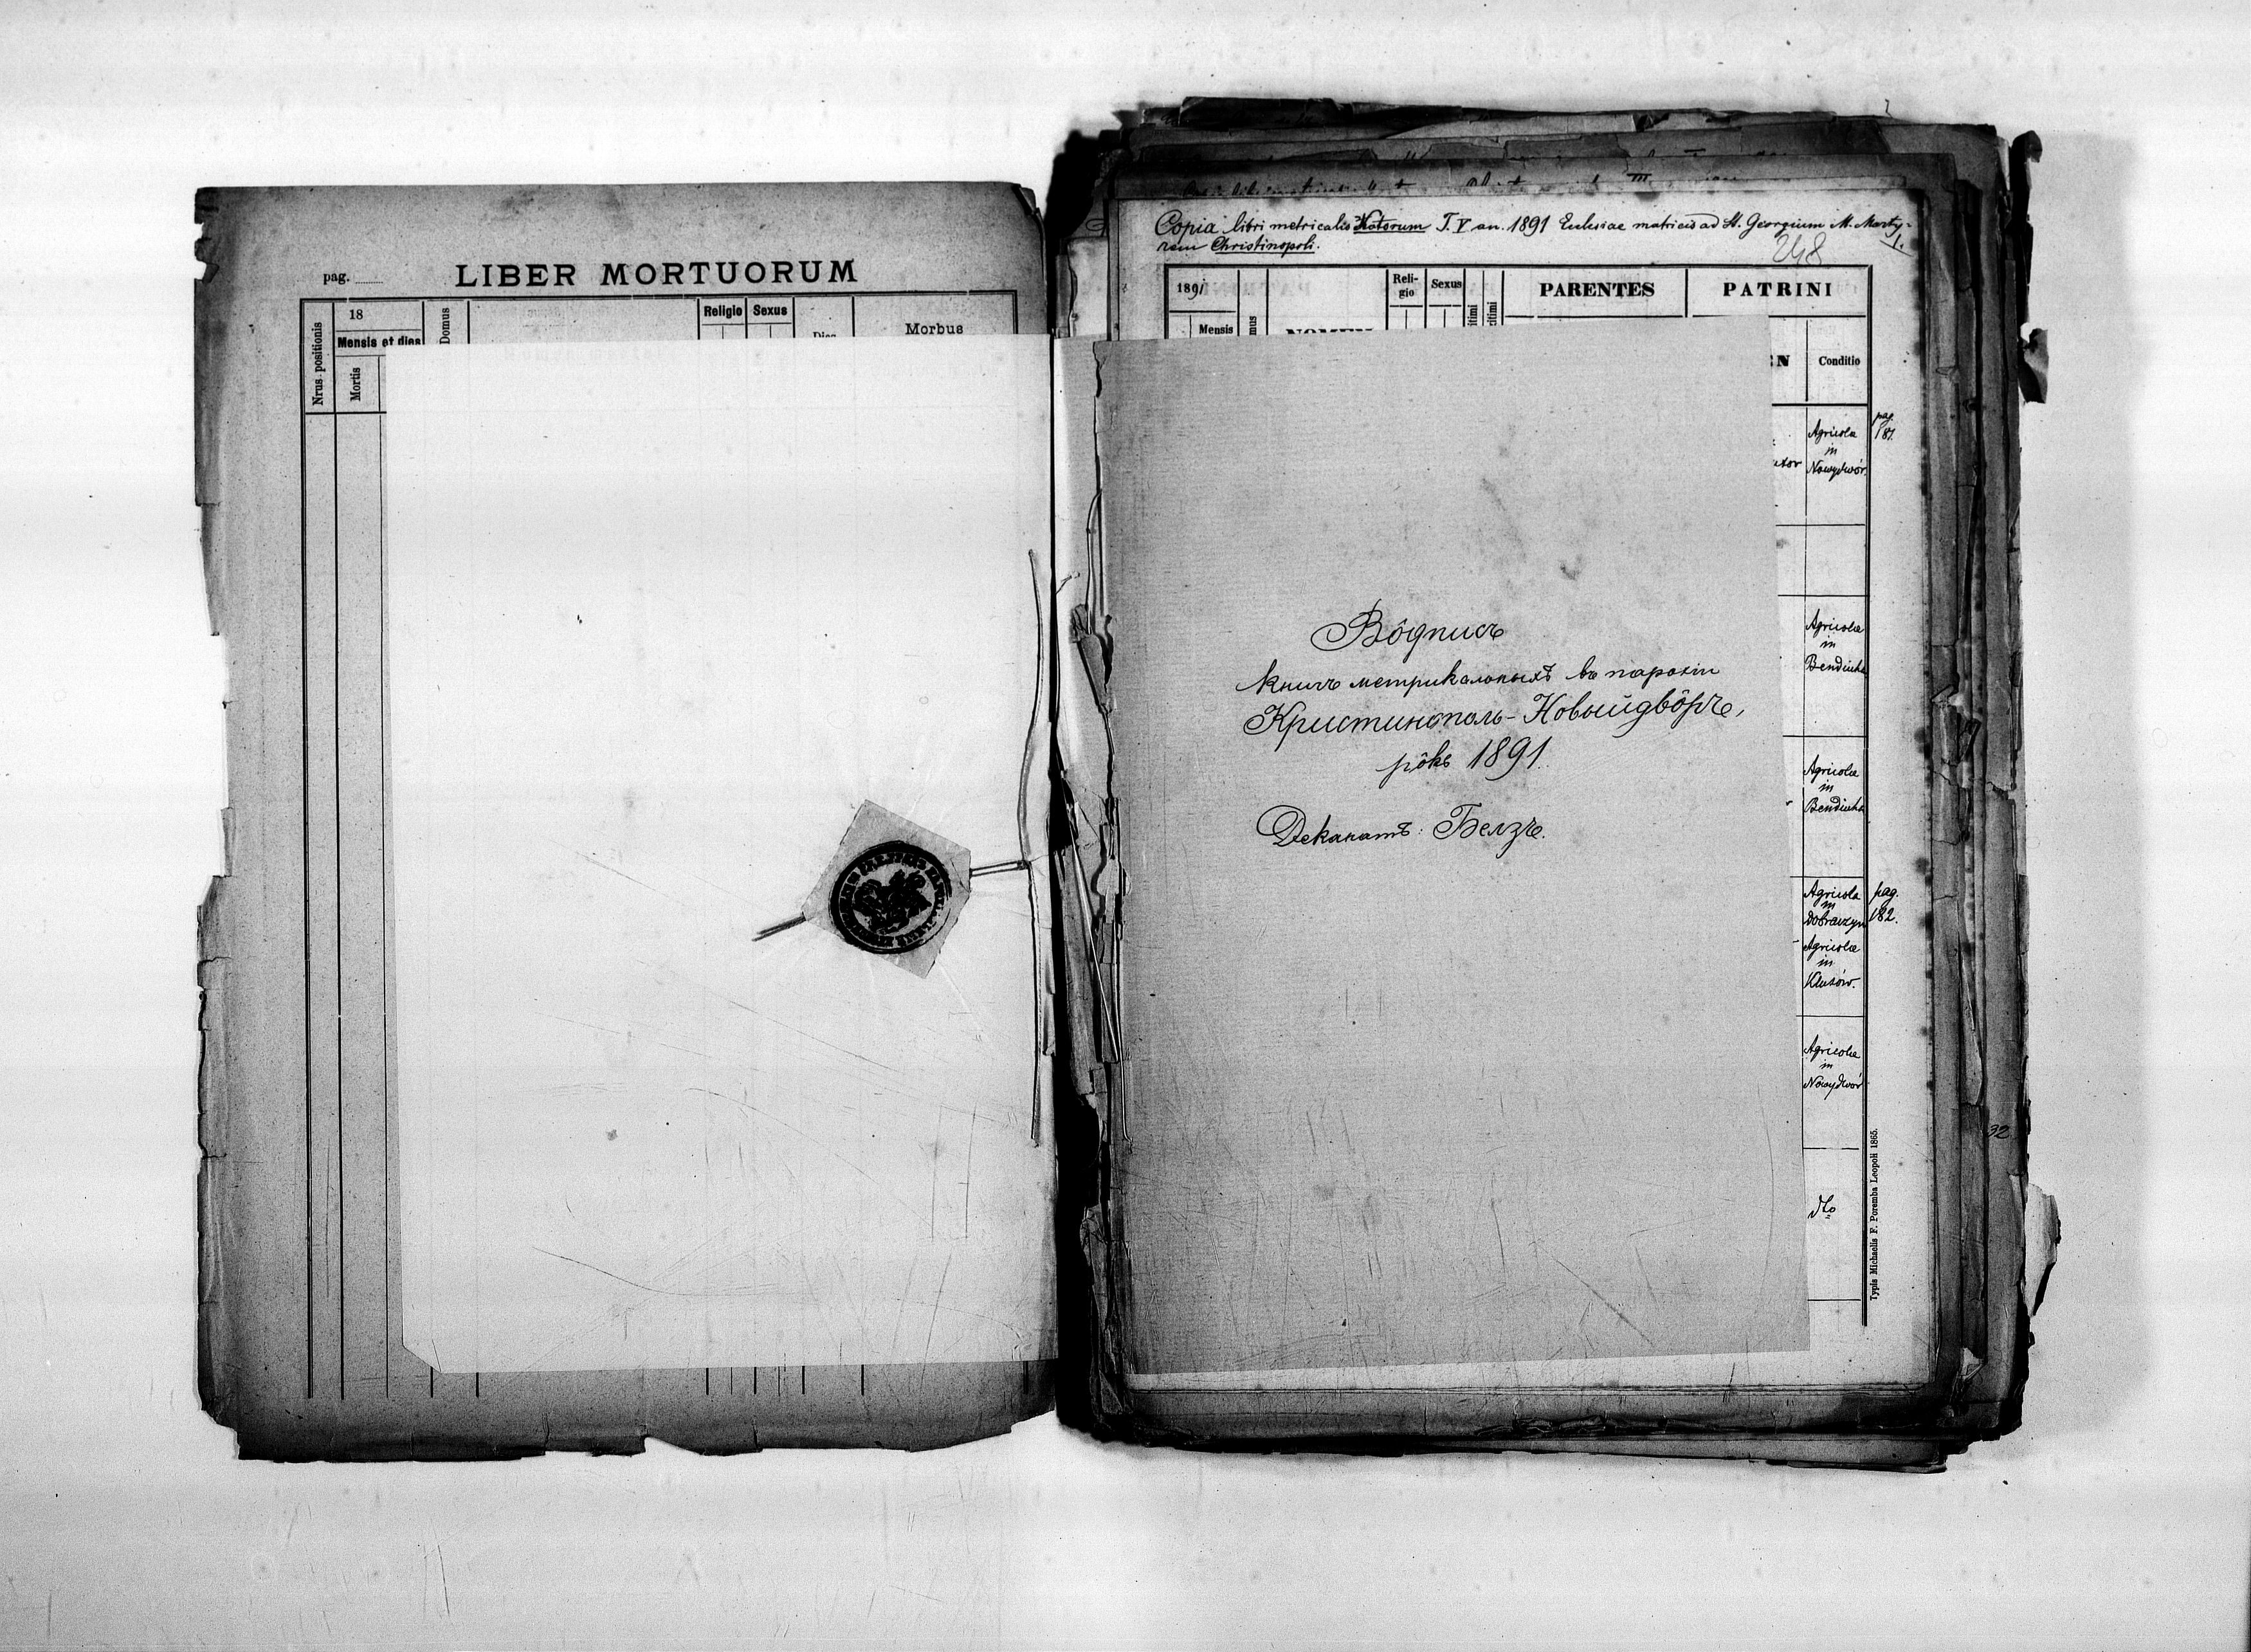 pag.
LIBER MORTUORUM
Nrus positionis
18
Mensis et dies
Mortis
Domus
Religio
Sexus
Dies
Morbus
Copia libri metricalis Natorum T. V an. 1891 Ecclesiae matricis ad St. Georgium M. Marty-
rem Christinopoli.
1.
248
1891
Mensis
Reli-
gio
Sexus
PARENTES
PATRINI
NOMEN
Conditio
Agricola
in
Nowydwór.
pag.
181.
Agricolae
in
Bendiuha
Agricolae
in
Bendiuha
Agricola
in
Dobraczyn
pag.
182.
Agricolae
in
Klusów.
Agricolae
in
Nowydwór
dto
Typis Michaelis F. Poremba Leopoli 1865.
32
Вôдпись
книгъ метрикальныхъ въ парохіи
Кристинополь-Новыйдвôръ,
рôкъ 1891.
Деканатъ: Белзъ.